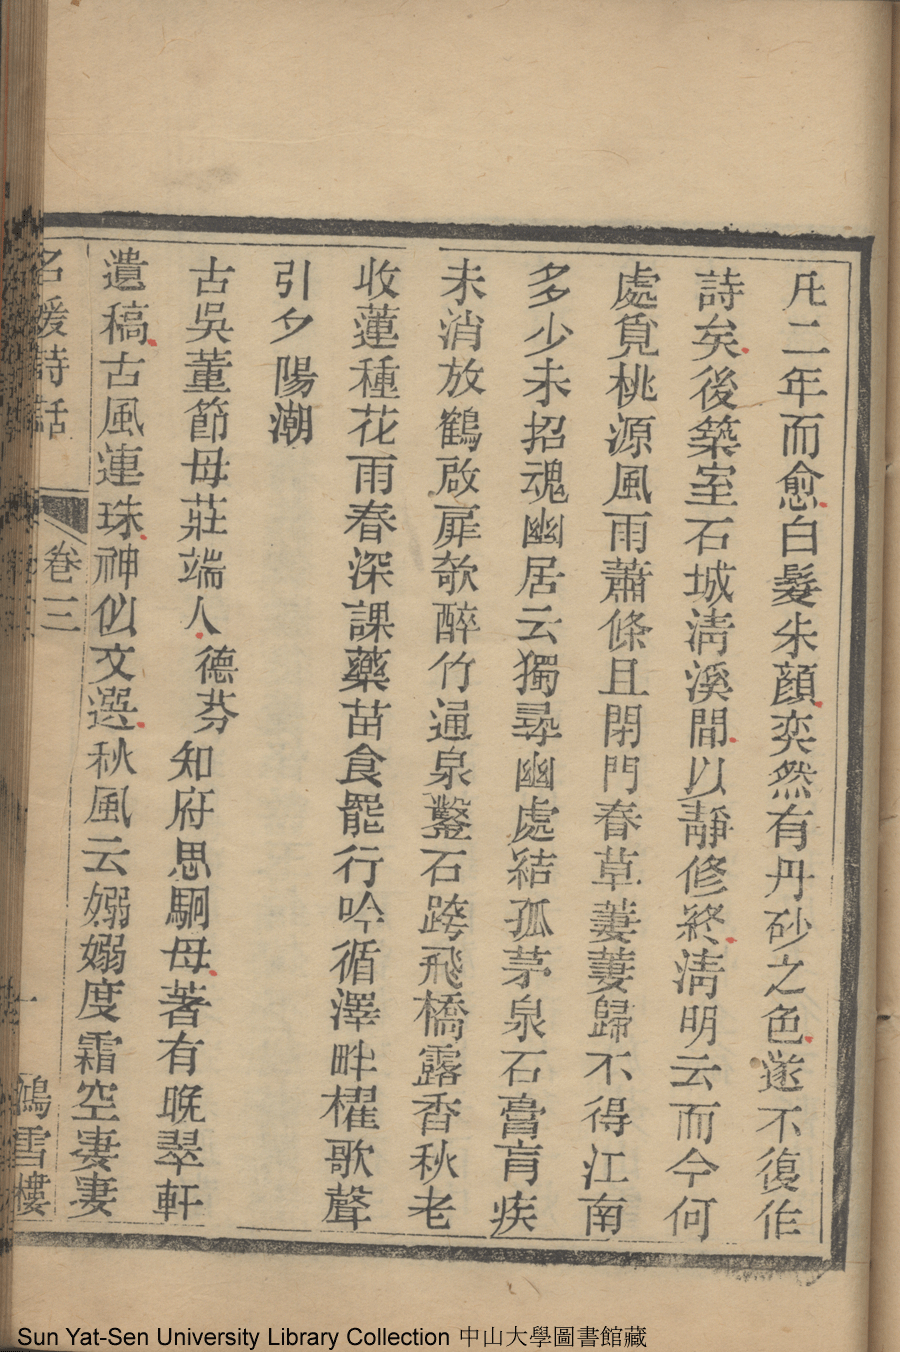 凡二年而愈白髮朱顔奕然有丹砂之色遂不復作
詩矣後築室石城清溪間以靜修終清明云而今何
處覓桃源風雨蕭條且閉門春草萋萋歸不得江南
多少未招魂幽居云獨尋幽處結孤茅泉石膏肓疾
未消放鶴啟扉欹醉竹通泉鑿石跨飛橋露香秋老
收蓮種花雨春深課藥苗食罷行吟循澤畔櫂歌聲
引夕陽潮
古吳董節母莊端人德芬知府思駉母著有晚翠軒
遺稿古風連珠神似文選秋風云嫋嫋度霜空凄凄
名媛詩話
卷三
一
鴻雪樓
Sun Yat-Sen University Library Collection 中山大學圖書館藏